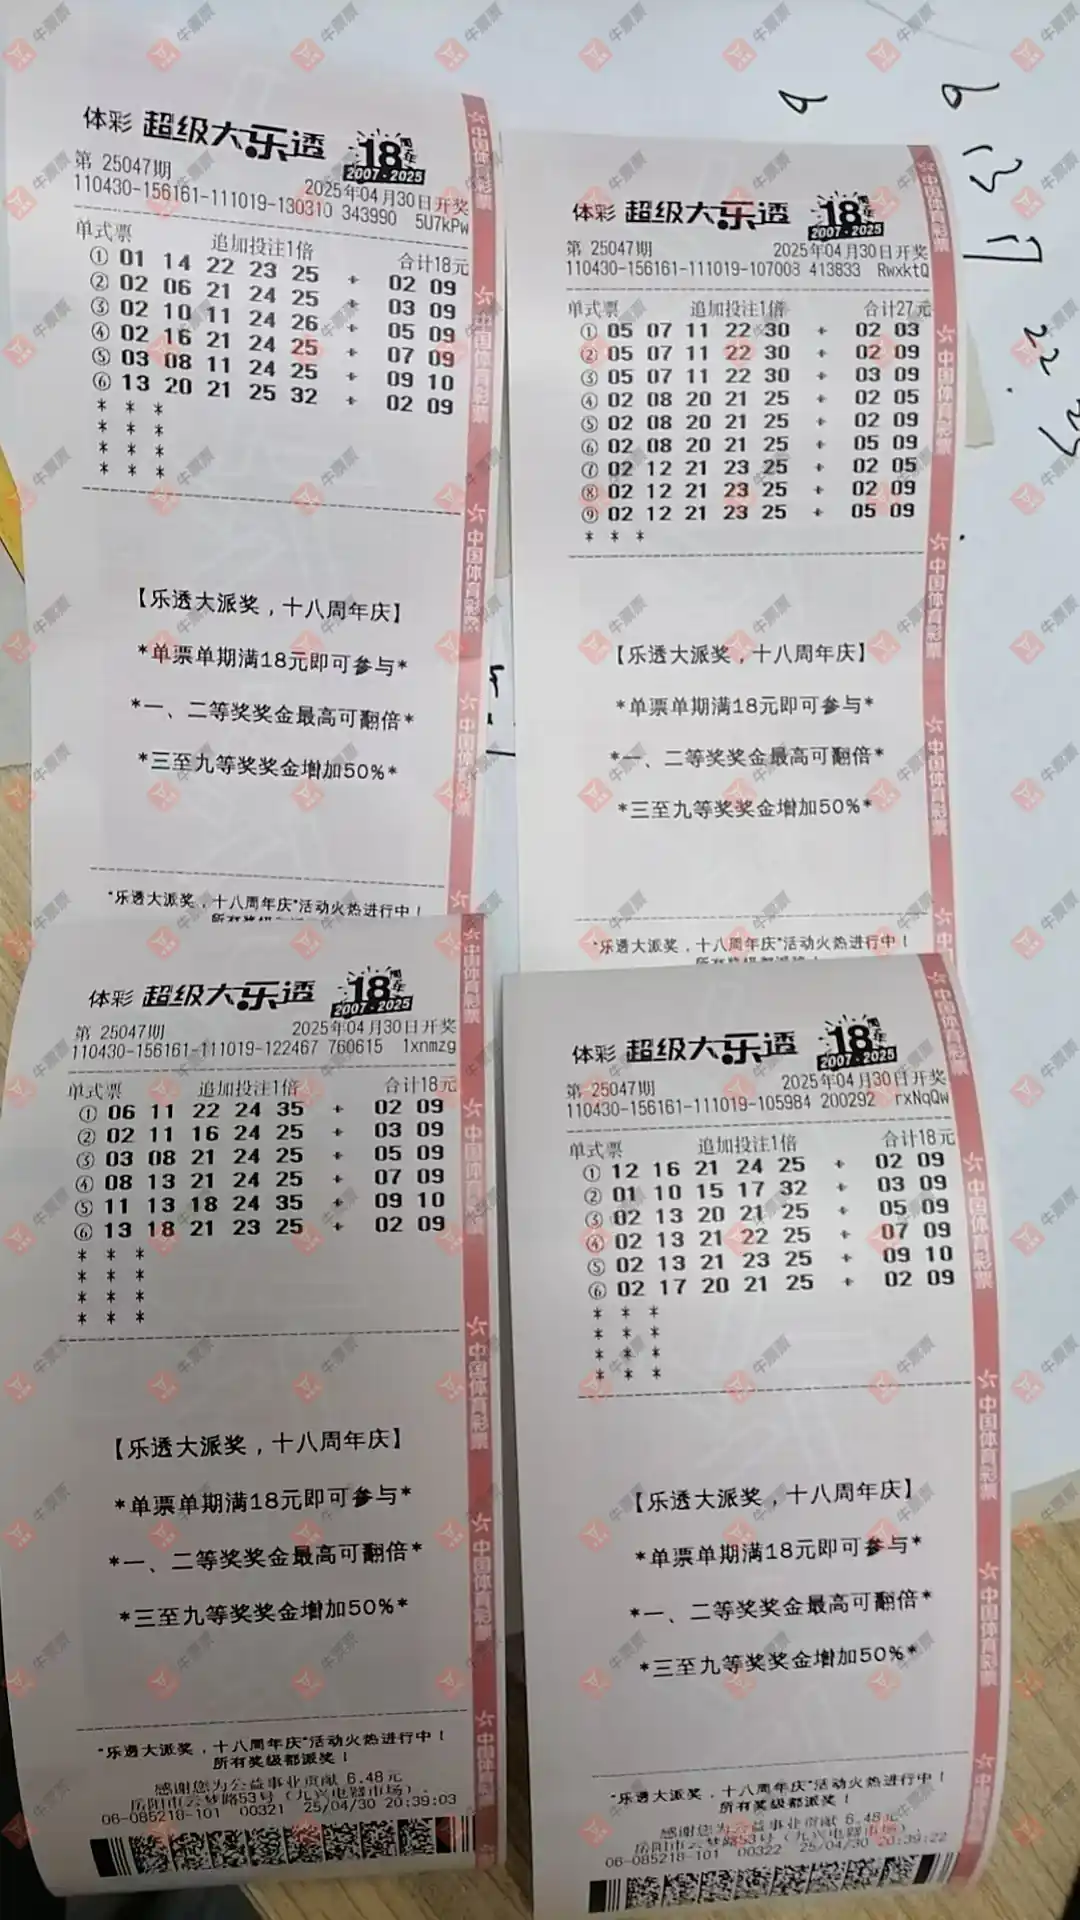 体彩 超级大乐透 18周年
2007-2025
第 25047期 2025年04月30日开奖
110430-156161-111019-130310 343990 5U7kPw
单式票 追加投注1倍 合计18元
① 01 14 22 23 25 + 02 09
② 02 06 21 24 25 + 03 09
③ 02 10 11 24 26 + 05 09
④ 02 16 21 24 25 + 07 09
⑤ 03 08 11 24 25 + 09 10
⑥ 13 20 21 25 32 + 02 09
* * *
* * *
* * *
* * *
【乐透大派奖，十八周年庆】
*单票单期满18元即可参与*
*一、二等奖奖金最高可翻倍*
*三至九等奖奖金增加50%*
"乐透大派奖，十八周年庆"活动火热进行中！
体彩 超级大乐透 18周年
2007-2025
第 25047期 2025年04月30日开奖
110430-156161-111019-107008 413833 RwxktQ
单式票 追加投注1倍 合计27元
① 05 07 11 22 30 + 02 03
② 05 07 11 22 30 + 02 09
③ 05 07 11 22 30 + 03 09
④ 02 08 20 21 25 + 02 05
⑤ 02 08 20 21 25 + 02 09
⑥ 02 08 20 21 25 + 05 09
⑦ 02 12 21 23 25 + 02 05
⑧ 02 12 21 23 25 + 02 09
⑨ 02 12 21 23 25 + 05 09
* * *
【乐透大派奖，十八周年庆】
*单票单期满18元即可参与*
*一、二等奖奖金最高可翻倍*
*三至九等奖奖金增加50%*
"乐透大派奖，十八周年庆"活动火热进行中！
体彩 超级大乐透 18周年
2007-2025
第 25047期 2025年04月30日开奖
110430-156161-111019-122467 760615 1xnmzg
单式票 追加投注1倍 合计18元
① 06 11 22 24 35 + 02 09
② 02 11 16 24 25 + 03 09
③ 03 08 21 24 25 + 05 09
④ 08 13 21 24 25 + 07 09
⑤ 11 13 18 24 35 + 09 10
⑥ 13 18 21 23 25 + 02 09
* * *
* * *
* * *
* * *
【乐透大派奖，十八周年庆】
*单票单期满18元即可参与*
*一、二等奖奖金最高可翻倍*
*三至九等奖奖金增加50%*
"乐透大派奖，十八周年庆"活动火热进行中！
所有奖级都派奖！
感谢您为公益事业贡献 6.48元
岳阳市云梦路53号（九兴电器市场）
06-085218-101 00321 25/04/30 20:39:03
体彩 超级大乐透 18周年
2007-2025
第 25047期 2025年04月30日开奖
110430-156161-111019-105984 200292 rxNqQw
单式票 追加投注1倍 合计18元
① 12 16 21 24 25 + 02 09
② 01 10 15 17 32 + 03 09
③ 02 13 20 21 25 + 05 09
④ 02 13 21 22 25 + 07 09
⑤ 02 13 21 23 25 + 09 10
⑥ 02 17 20 21 25 + 02 09
* * *
* * *
* * *
* * *
【乐透大派奖，十八周年庆】
*单票单期满18元即可参与*
*一、二等奖奖金最高可翻倍*
*三至九等奖奖金增加50%*
"乐透大派奖，十八周年庆"活动火热进行中！
所有奖级都派奖！
感谢您为公益事业贡献 6.48元
岳阳市云梦路53号（九兴电器市场）
06-085218-101 00322 25/04/30 20:39:22
中国体育彩票
牛票票